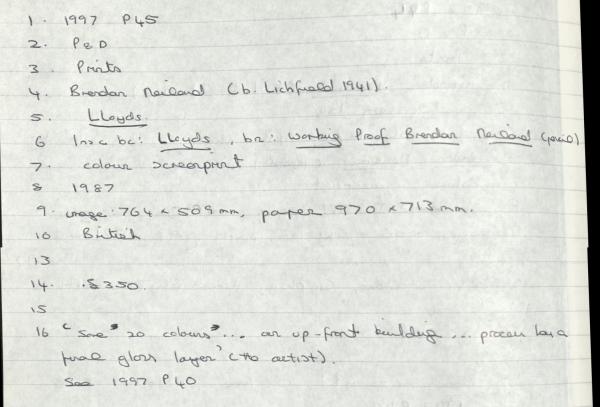 1. 1997 P45
2. P&D
3 Prints
4. Brendan Neiland (b. Lichfield 1941).
5. LLoyds.
6 Insc bc: LLoyds, br: Working Proof Brendan Neiland (pencil)
7. colour screenprint
8 1987
9. image: 764 x 509mm, paper 970 x 713mm.
10 British
13
14. 350.
15
16 'Some 20 colours ... an up-front building ... process has a
final gloss layer' (the artist).
See 1997 P40